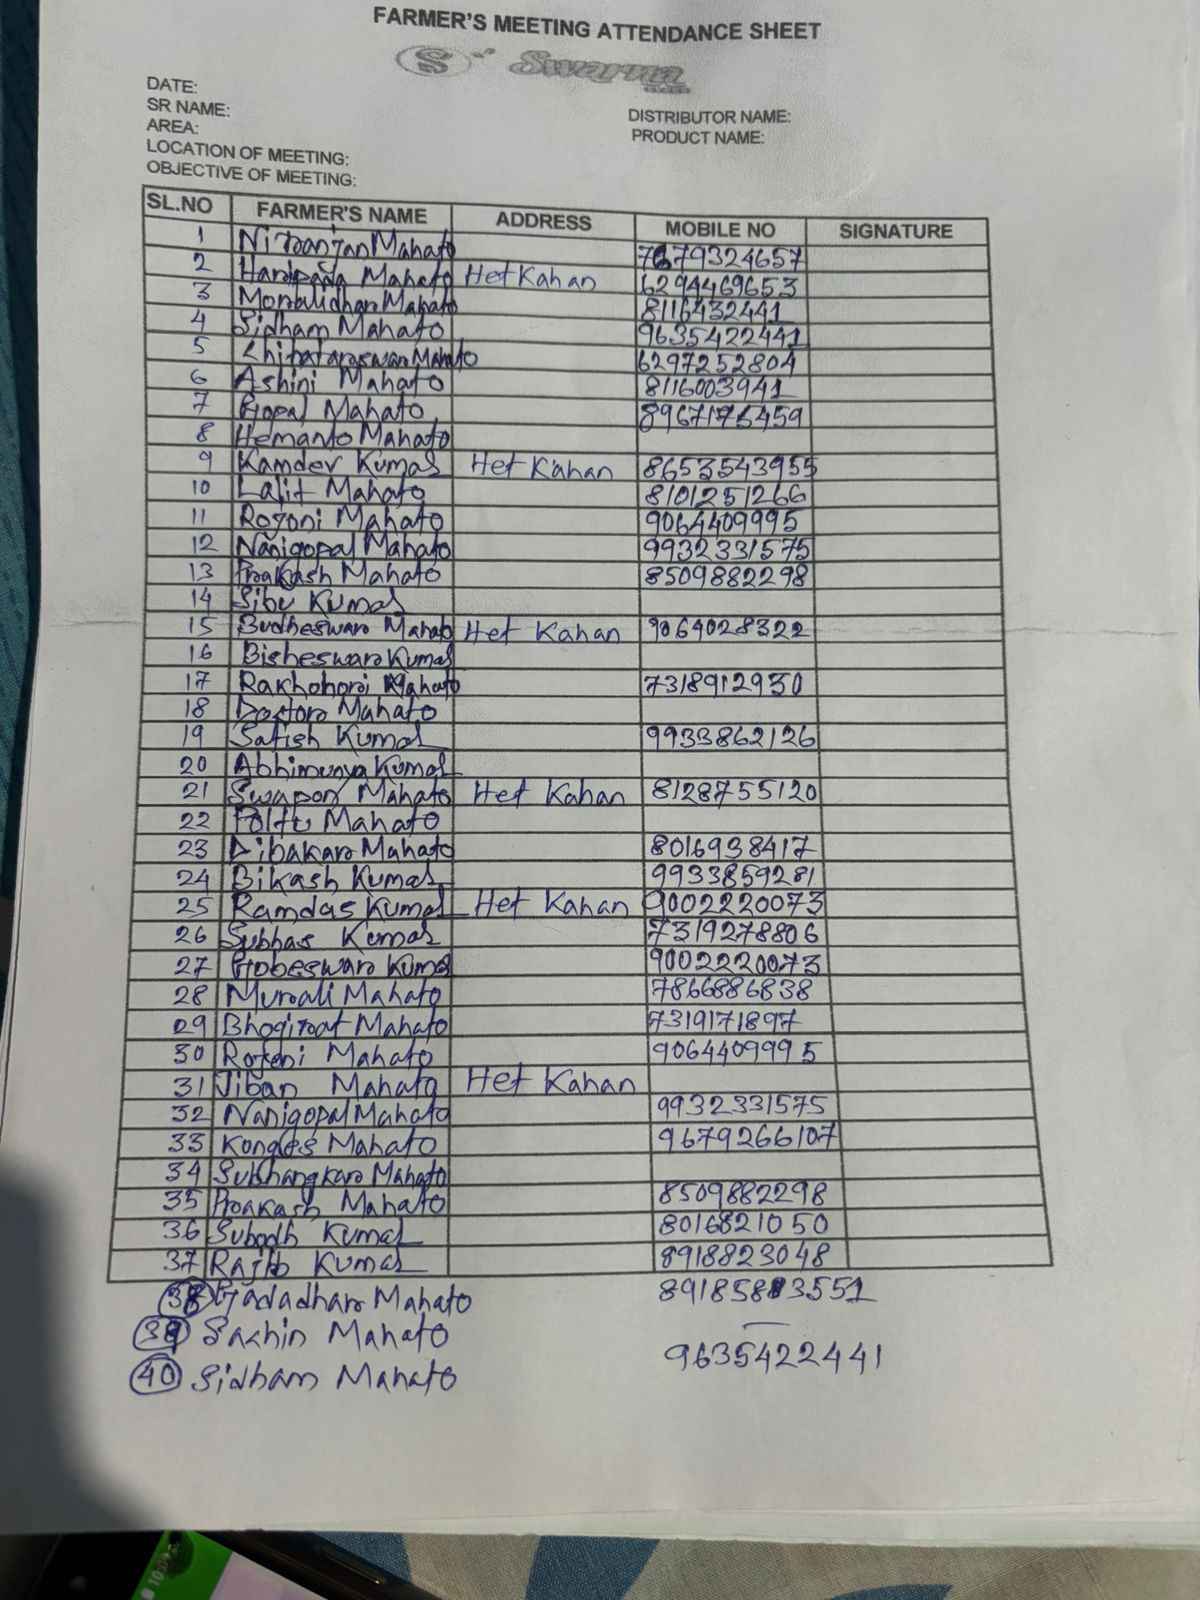 FARMER'S MEETING ATTENDANCE SHEET
S Swarna
DATE:
SR NAME:
DISTRIBUTOR NAME:
AREA:
PRODUCT NAME:
LOCATION OF MEETING:
OBJECTIVE OF MEETING:
SL.NO FARMER'S NAME ADDRESS MOBILE NO SIGNATURE
1 Niranjan Mahato 7679324657
2 Haripada Mahato Het Kahan 6294469653
3 Mahato 8116432441
4 Sidham Mahato 9635422441
5 Mahato 6297252804
6 Ashini Mahato 8116003941
7 Gopal Mahato 8967175459
8 Hemanto Mahato
9 Kamdev Kumar Het Kahan 8653543955
10 Lalit Mahato 8101251266
11 Rojoni Mahato 9064409995
12 Nanigopal Mahato 9932331575
13 Prakash Mahato 8509882298
14 Sibu Kumar
15 Budheswar Mahato Het Kahan 9064028322
16 Bisheswar Kumar
17 Rakhohori Mahato 7318912930
18 Mahato
19 Satish Kumar 9933862126
20 Abhimunya Kumar
21 Swapon Mahato Het Kahan 8128755120
22 Poltu Mahato
23 Dibakar Mahato 8016938417
24 Bikash Kumar 9933859281
25 Ramdas Kumar Het Kahan 9002220073
26 Subhas Kumar 7319278806
27 Gobeswar Kumar 9002220073
28 Murali Mahato 7866886838
29 Bhogirat Mahato 7319171897
30 Rojoni Mahato 9064409995
31 Jiban Mahato Het Kahan
32 Nanigopal Mahato 9932331575
33 Mahato 9679266107
34 Subhangkar Mahato
35 Prakash Mahato 8509882298
36 Subodh Kumar 8016821050
37 Rajib Kumar 8918823048
38 Gadadhar Mahato
39 Sachin Mahato —
40 Sidham Mahato 9635422441